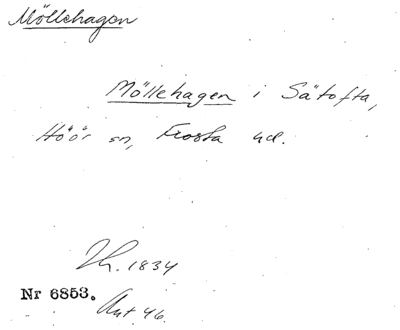 Möllehagen
Möllehagen i Sätofta,
Höör sn, Frosta hd.
1834
Nr 6853.
Ant 46.